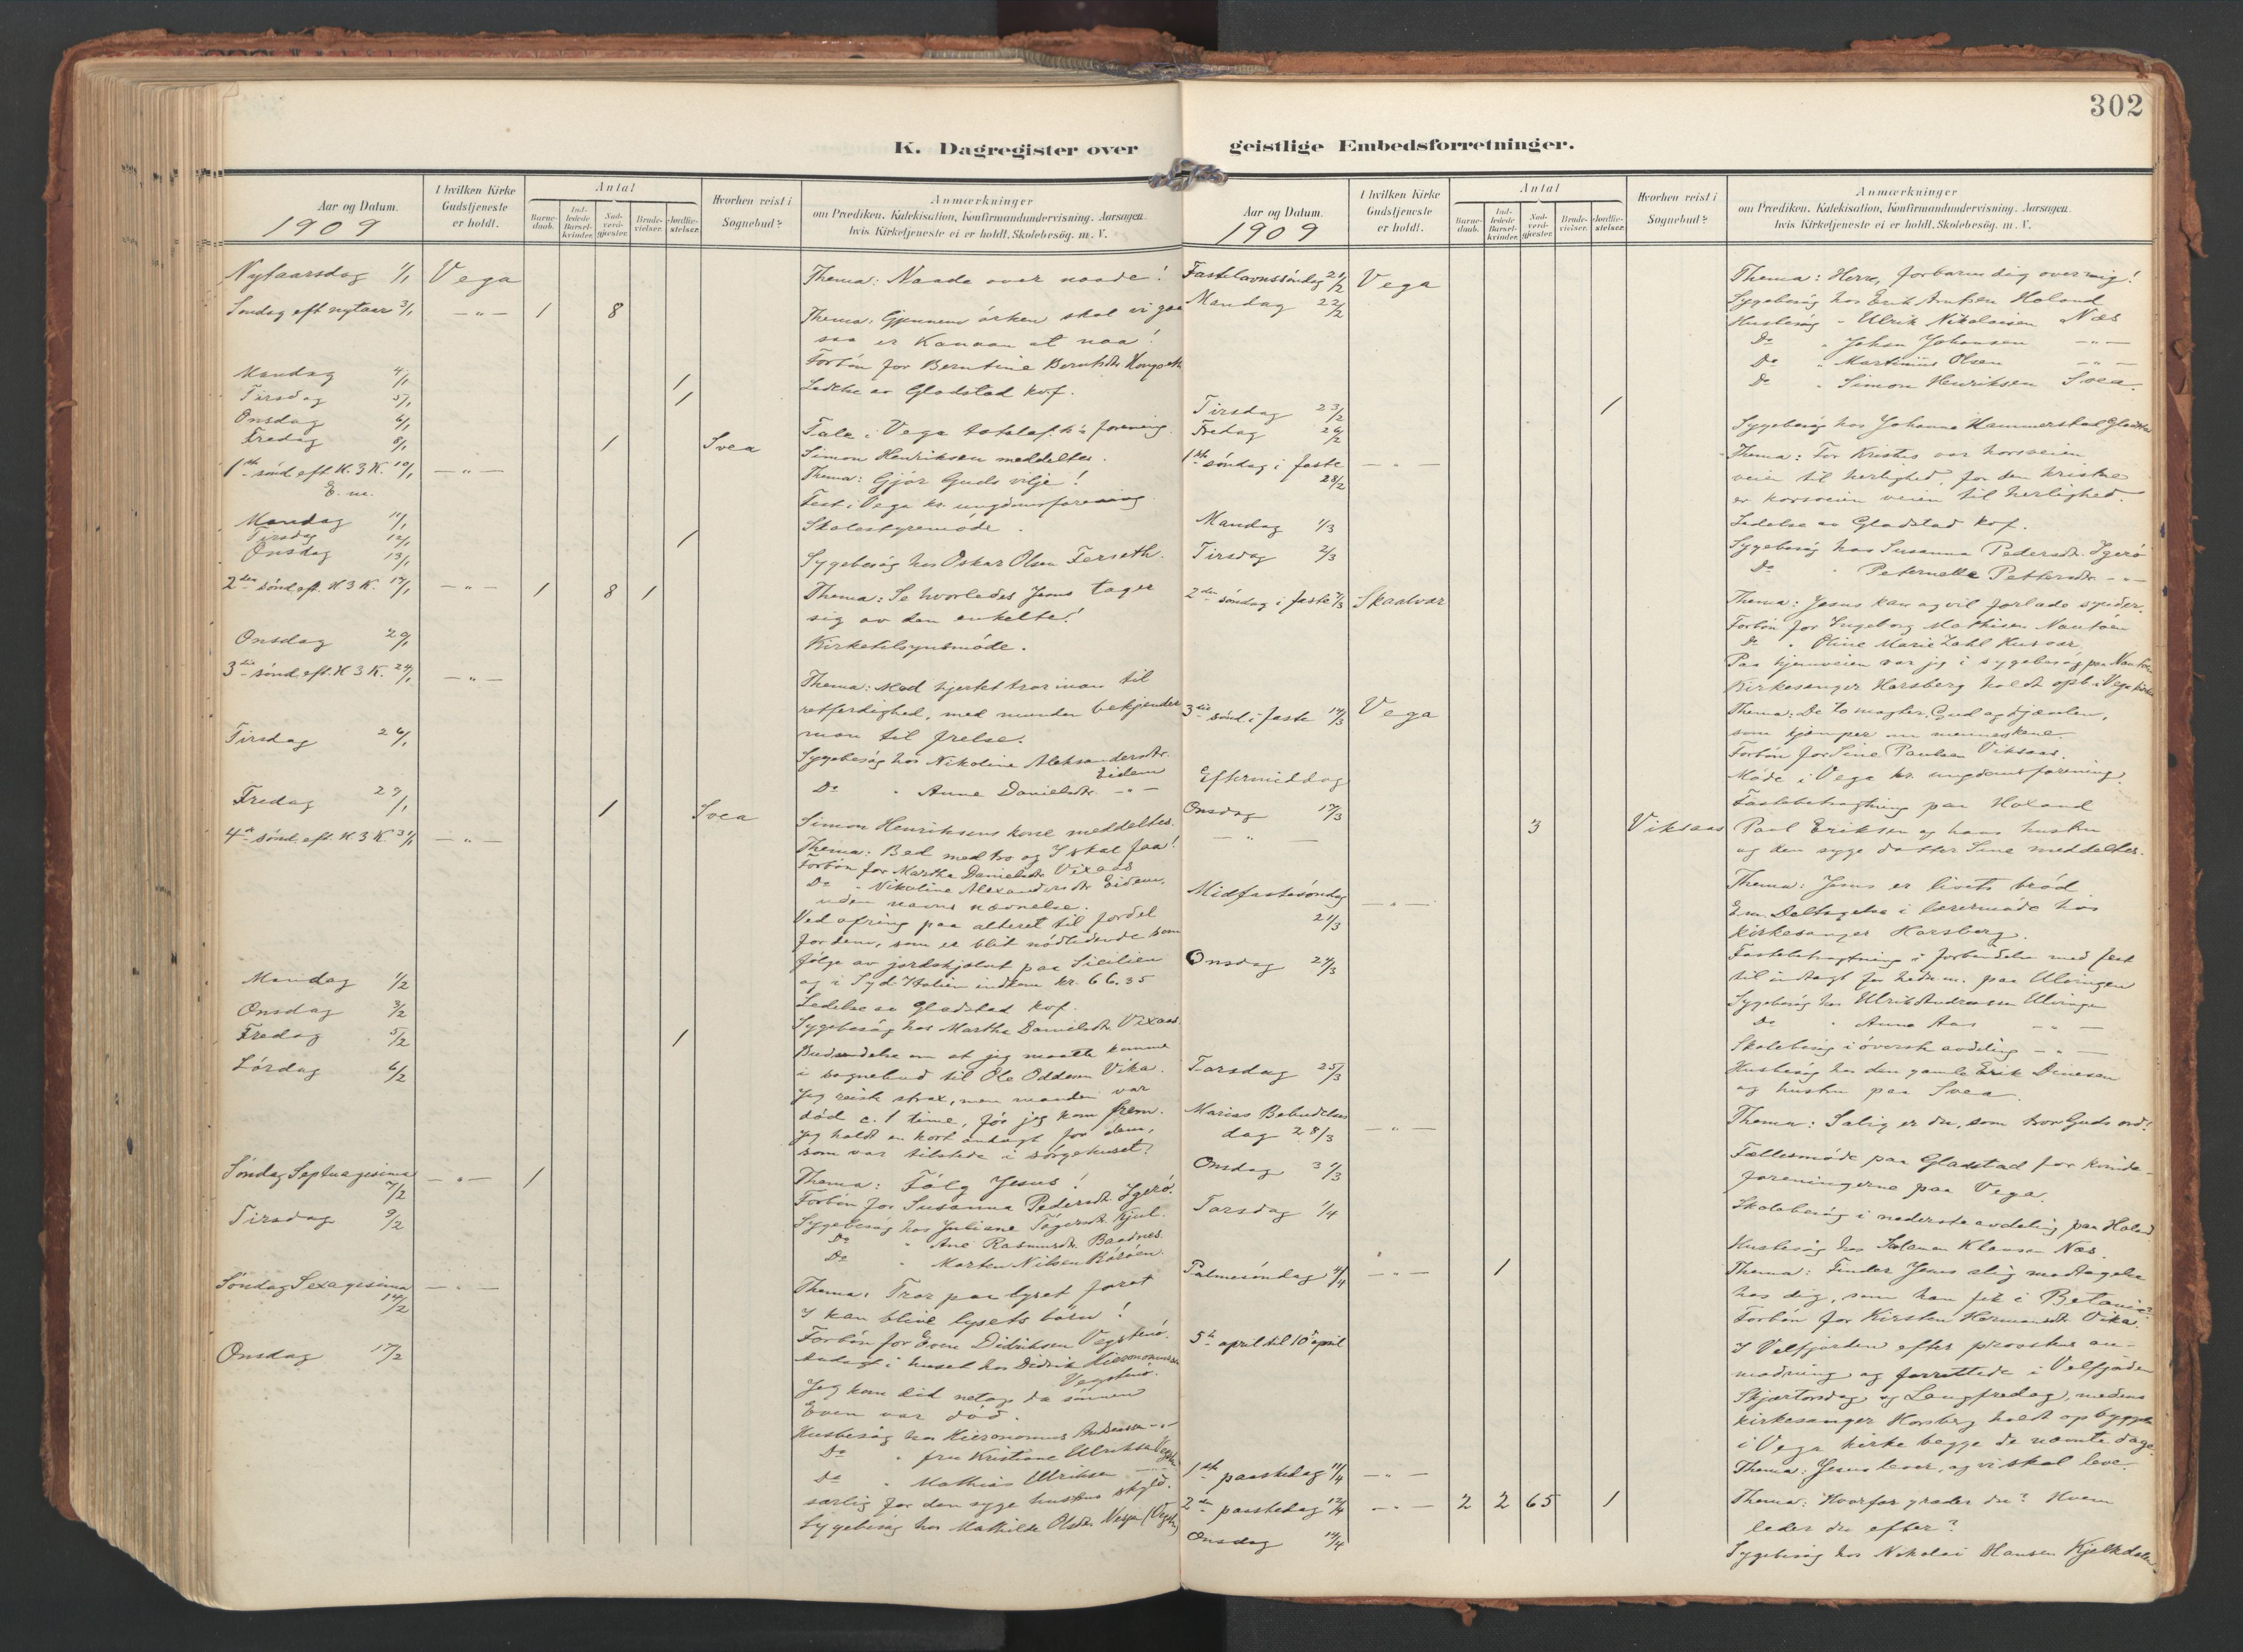 302
K. Dagregister over geistlige Embedsforretninger.
Aar og Datum.
1909
I hvilken Kirke Gudstjeneste er holdt.
Antal
Barnedaab.
Indledede Barselkvinder.
Nadverdgjester.
Brudevielser.
Jordfæstelser.
Hvorhen reist i Sognebud?
Anmærkninger
om Prædiken, Katekisation, Konfirmandundervisning, Aarsagen,
hvis Kirketjeneste ei er holdt, Skolebesøg. m. V.
Nytaarsdag 1/1 Vega Thema: Naade over naade!
Søndag eft nytaar 3/1 — " — 1 8 Thema: Gjennem ørken skal vi gaa
saa er Kanaan at naa!
Forbøn for Berntine
Mandag 4/1 1 Ledelse av Gladstad kvf.
Tirsdag 5/1 1
Onsdag 6/1 Tale i Vega forening
Fredag 8/1 1 Svea Simon Henriksen meddeltes.
1ste sønd. eft. H. 3 K. 10/1 — " — Thema: Gjør Guds vilje!
E. m. Fest i Vega kr. ungdomsforening
Mandag 11/1 Skolestyremøde.
Tirsdag 12/1 1
Onsdag 13/1 Sygebesøg hos Oskar Olsen Ferseth.
2den sønd eft. H 3 K. 17/1 — " — 1 8 1 Thema: Se hvorledes Jesus tager
sig av den enkelte!
Onsdag 20/1 Kirketilsynsmøde.
3die sønd. eft. H 3 K. 24/1 — " — Thema: Med hjertet tror man til
retferdighed, med munden bekjender
man til frelse.
Tirsdag 26/1 Sygebesøg hos Nikoline Aleksandersdtr.
Eidem
Do " Anne Danielsdtr. — " —
Fredag 29/1 1 Svea Simon Henriksens kone meddeltes.
4de sønd. eft. H 3 K. 31/1 — " — Thema: Bed med tro og I skal faa!
Forbøn for Martha Danielsdtr. Vixaas
Do " Nikoline Alexandersdtr. Eidem.
uden navns nævnelse.
Ved ofring paa alteret til fordel
for dem, som er blit nødlidende som
følge av jordskjælvet paa Sicilien
og i Syd-Italien indkom kr. 66.35
Mandag 1/2 Ledelse av Gladstad kvf.
Onsdag 3/2 Sygebesøg hos Martha Danielsdtr. Vixaas.
Fredag 5/2 1
Lørdag 6/2 Budsendelse om at jeg maatte komme
i sognebud til Ole Oddesen Vika.
Jeg reiste strax, men manden var
død c. 1 time, før jeg kom frem.
Jeg holdt en kort andagt for dem,
som var tilstede i sørgehuset.
Søndag Septuagesima 7/2 — " — 1 Thema: Følg Jesus!
Forbøn for Susanna Pedersdtr. Igerø.
Tirsdag 9/2 Sygebesøg hos Juliane Kjul.
Do " Ane Rasmusdtr. Baadnes.
Do " Morten Nilsen
Søndag Sexagesima 14/2 — " — Thema: Tror paa lyset foret
I kan blive lysets børn!
Forbøn for Even Didriksen Vegstenø.
Onsdag 17/2 Andagt i huset hos Didrik Hieronomussen
Vegstenø.
Jeg kom did netop da sønnen
Even var død.
Husbesøg hos Hieronomus Andersen — " —
Do " fru Kristiane Ulriksen
Do " Mathias Ulriksen — " —
særlig for den syge hustrus skyld.
Sygebesøg hos Mathilde Olsdtr.
Aar og Datum.
1909
I hvilken Kirke Gudstjeneste er holdt.
Antal
Barnedaab.
Indledede Barselkvinder.
Nadverdgjester.
Brudevielser.
Jordfæstelser.
Hvorhen reist i Sognebud?
Anmærkninger
om Prædiken, Katekisation, Konfirmandundervisning, Aarsagen,
hvis Kirketjeneste ei er holdt, Skolebesøg. m. V.
Fastelavnssøndag 21/2 Vega Thema: Herre, forbarm dig over mig!
Mandag 22/2 Sygebesøg hos Erik Arntsen Holand
Husbesøg " Ulrik Nikolaisen Næs
Do " Johan Johansen — " —
Do " Martinius Olsen — " —
Do " Simon Henriksen Svea.
Tirsdag 23/2 1
Fredag 26/2 Sygebesøg hos Johanna Hammerstad Gladstad
1ste søndag i faste 28/2 — " — Thema: For Kristus var korsveien
veien til herlighed, for den kristne
er korsveien veien til herlighed.
Mandag 1/3 Ledelse av Gladstad kvf.
Tirsdag 2/3 Sygebesøg hos Susanna Pedersdtr. Igerø
Do " Peternelle Pettersdtr. — " —
2den søndag i faste 7/3 Skaalvær Thema: Jesus kan og vil forlade synder.
Forbøn for Ingeborg Mathisen
Do " Oline Marie Zahl Husvær.
Paa hjemveien var jeg i sygebesøg paa
Kirkesanger Horsberg holdt opb. i Vega kirke
3die sønd. i faste 14/3 Vega Thema: De to magter, Gud og djævlen,
som kjæmper om menneskene.
Forbøn for Sine Paulsen Viksaas.
Eftermiddag Møde i Vega kr. ungdomsforening.
Onsdag 17/3 Fastebetragtning paa Holand
— " — 3 Viksaas Paul Eriksen og hans hustru
og den syge datter Sine meddeltes.
Midfastesøndag 21/3 — " — Thema: Jesus er livets brød
Em. Deltagelse i lærermøde hos
kirkesanger Horsberg.
Onsdag 24/3 Fastebetragtning i forbindelse med fest
til indtægt for hedn. m. paa Ulvingen
Sygebesøg hos Ulrik Andreassen Ulvingen
Do " Anna Aas — " —
Skolebesøg i øverste avdeling — " —
Torsdag 25/3 Husbesøg hos den gamle Erik
og hustru paa Svea.
Marias Bebudelses
dag 28/3 — " — Thema: Salig er du, som tror Guds ord!
Onsdag 31/3 Fællesmøde paa Gladstad for kvinde-
foreningerne paa Vega.
Torsdag 1/4 Skolebesøg i nederste avdeling paa Holand
Husbesøg hos Klausen Næs.
Palmesøndag 4/4 — " — 1 Thema: Finder Jesus slig modtagelse
hos dig, som han fik i Betania?
Forbøn for Kirsten Hermansdtr. Vika.
5te april til 10de april I Velfjorden efter provstens an-
modning og forrettede i Velfjorden
Skjærtorsdag og Langfredag, medens
kirkesanger Horsberg holdt opbyggelse
i Vega kirke begge de nævnte dage.
1ste paaskedag 11/4 — " — Thema: Jesus lever, og vi skal leve.
2den paaskedag 12/4 — " — 2 2 65 1 Thema: Hvorfor græder du? Hvem
leder du efter?
Onsdag 14/4 Sygebesøg hos Nikolai Hansen Kjelkdalen.